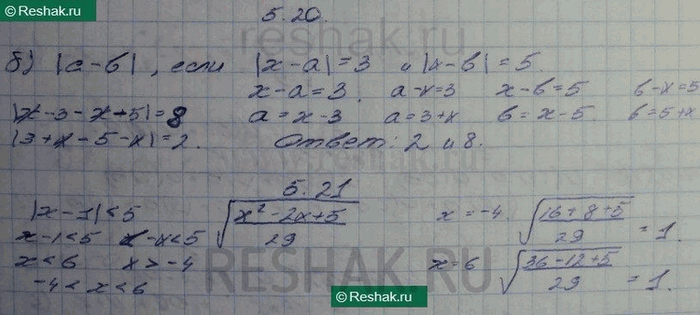 Reshak.ru
5.20.
б) |a-b|, если |x-a|=3 и |x-b|=5
x-a=3. a-x=3 x-b=5 b-x=5
|x-3-x+5|=8 a=x-3 a=3+x b=x-5. b=5+x
|3+x-5-x|=2. Ответ: 2 и 8.
5.21
|x-1|<5 √(x²-2x+5)/29 x=-4. √(16+8+5)/29 =1.
x-1<5 1-x<5
x<6 x>-4 x=6 √(36-12+5)/29 =1.
-4<x<6
RESHAK.RU
Reshak.ru